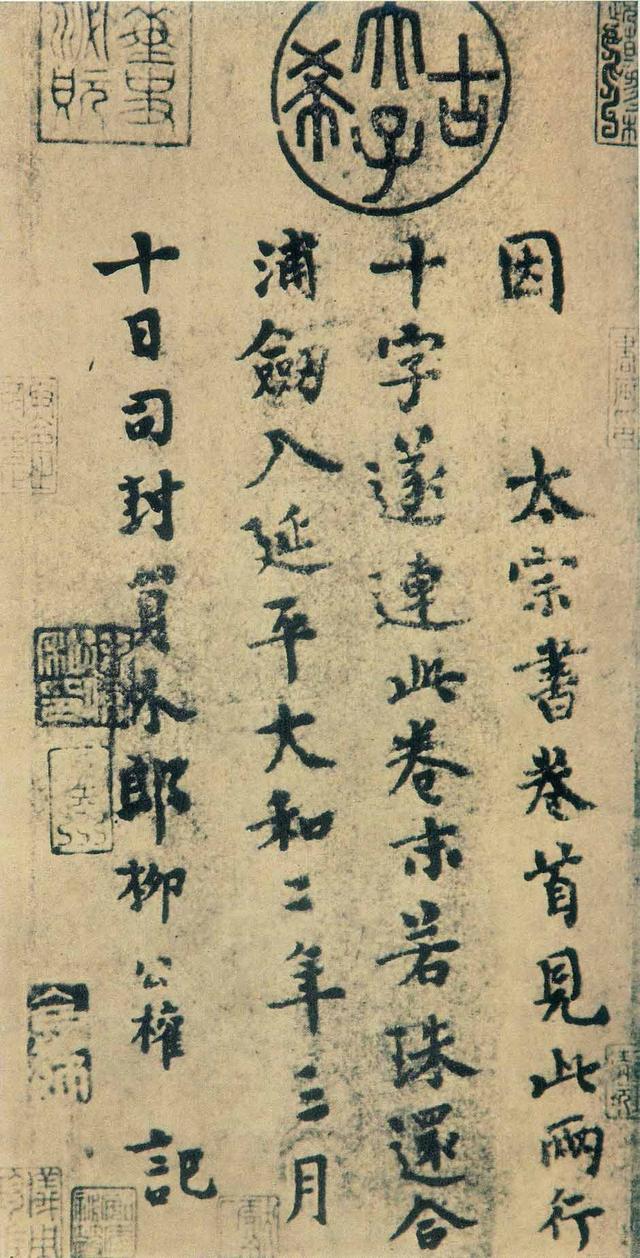 古希天子
因 太宗書卷首見此兩行
十字遂連此卷末若珠還合
浦劒入延平大和二年三月
十日司封員外郎柳公權 記